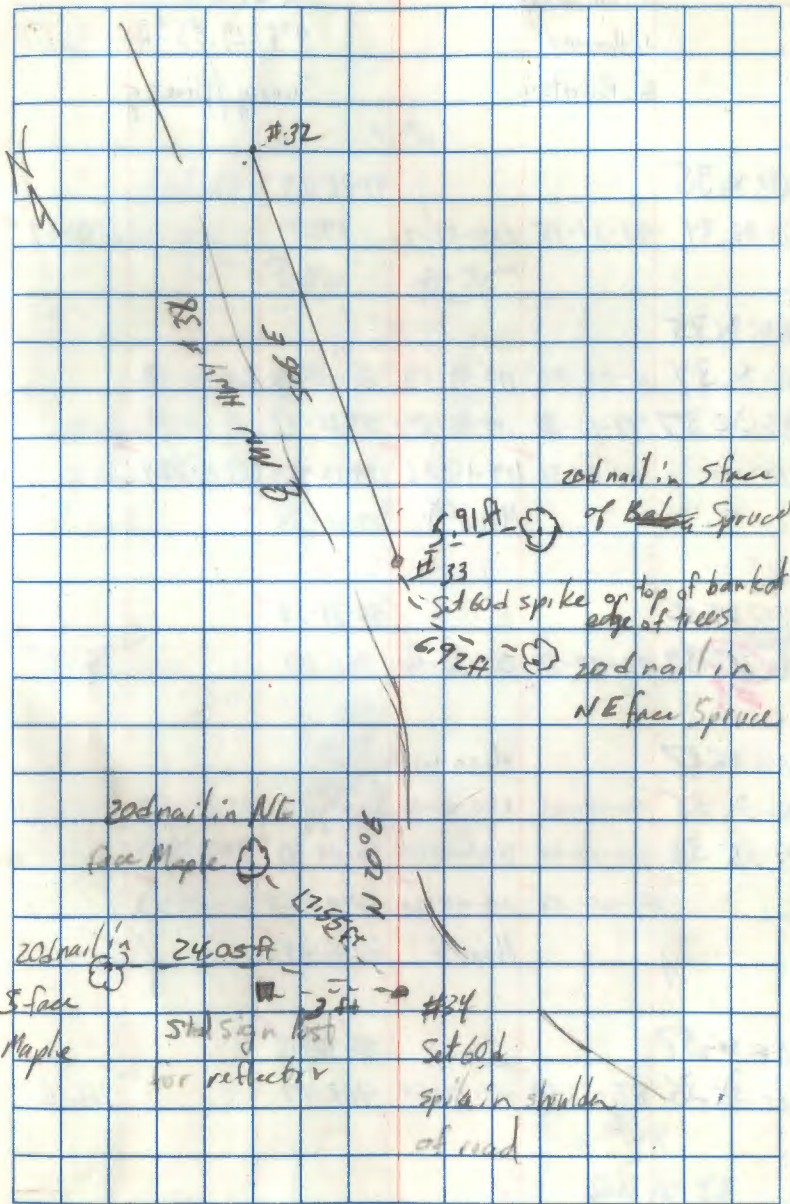 #32
HWY # 38
20d nail in S face
of Spruce
5.91 ft
#33
Set 60d spike on top of bank at
edge of trees
6.92 ft
20d nail in
NE face Spruce
20d nail in NE
face Maple
17.55 ft
20d nail in
S face
Maple
24.05 ft
2 ft
Std Sign Post
for reflector
#34
Set 60d
spike in shoulder
of road